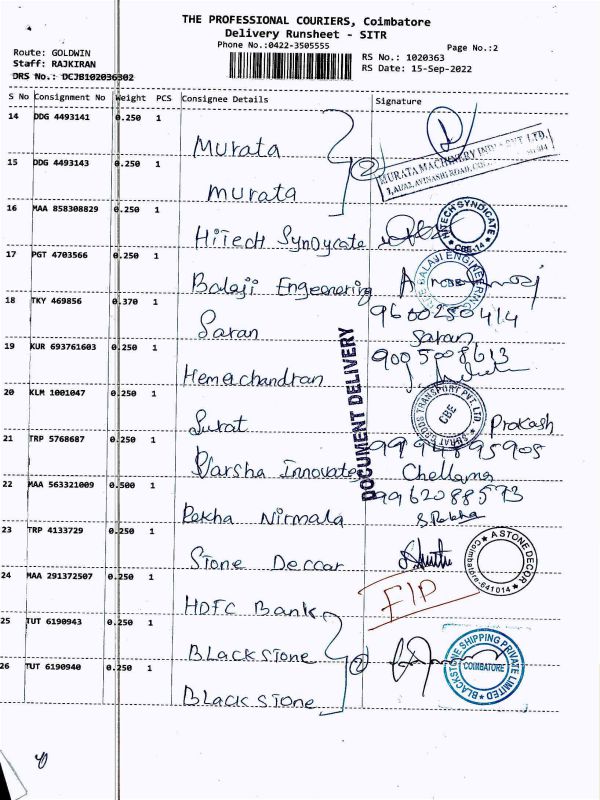 THE PROFESSIONAL COURIERS, Coimbatore
Delivery Runsheet - SITR
Phone No.:0422-3505555
Page No.:2
Route: GOLDWIN
Staff: RAJKIRAN
DRS No.: DCJB102036302
RS No.: 1020363
RS Date: 15-Sep-2022
S No Consignment No Weight PCS Consignee Details Signature
14 DDG 4493141 0.250 1
Murata
MURATA MACHINERY INDIA PVT. LTD.
15 DDG 4493143 0.250 1
Murata
2
16 MAA 858308829 0.250 1
HiTech Syndycate
HITECH SYNDICATE
CBE-14
17 PGT 4703566 0.250 1
Balaji Engeenering
BALAJI ENGINEERING
CBE
18 TKY 469856 0.370 1
Saran
9600250414
Saran
19 KUR 693761603 0.250 1
Hemachandran
9005008613
20 KLM 1001047 0.250 1
Surat
TRANSPORT PVT. LTD.
CBE
Prokash
21 TRP 5768687 0.250 1
Varsha Innovates
DOCUMENT DELIVERY
9994895905
Chellama
22 MAA 563321009 0.500 1
Rekha Nirmala
9962088573
S.Rekha
23 TRP 4133729 0.250 1
Stone Deccor
A STONE DECOR
Coimbatore-641014
24 MAA 291372507 0.250 1
HDFC Bank
F/P
25 TUT 6190943 0.250 1
Blackstone
2
26 TUT 6190940 0.250 1
Blackstone
BLACKSTONE SHIPPING PRIVATE LIMITED
COIMBATORE